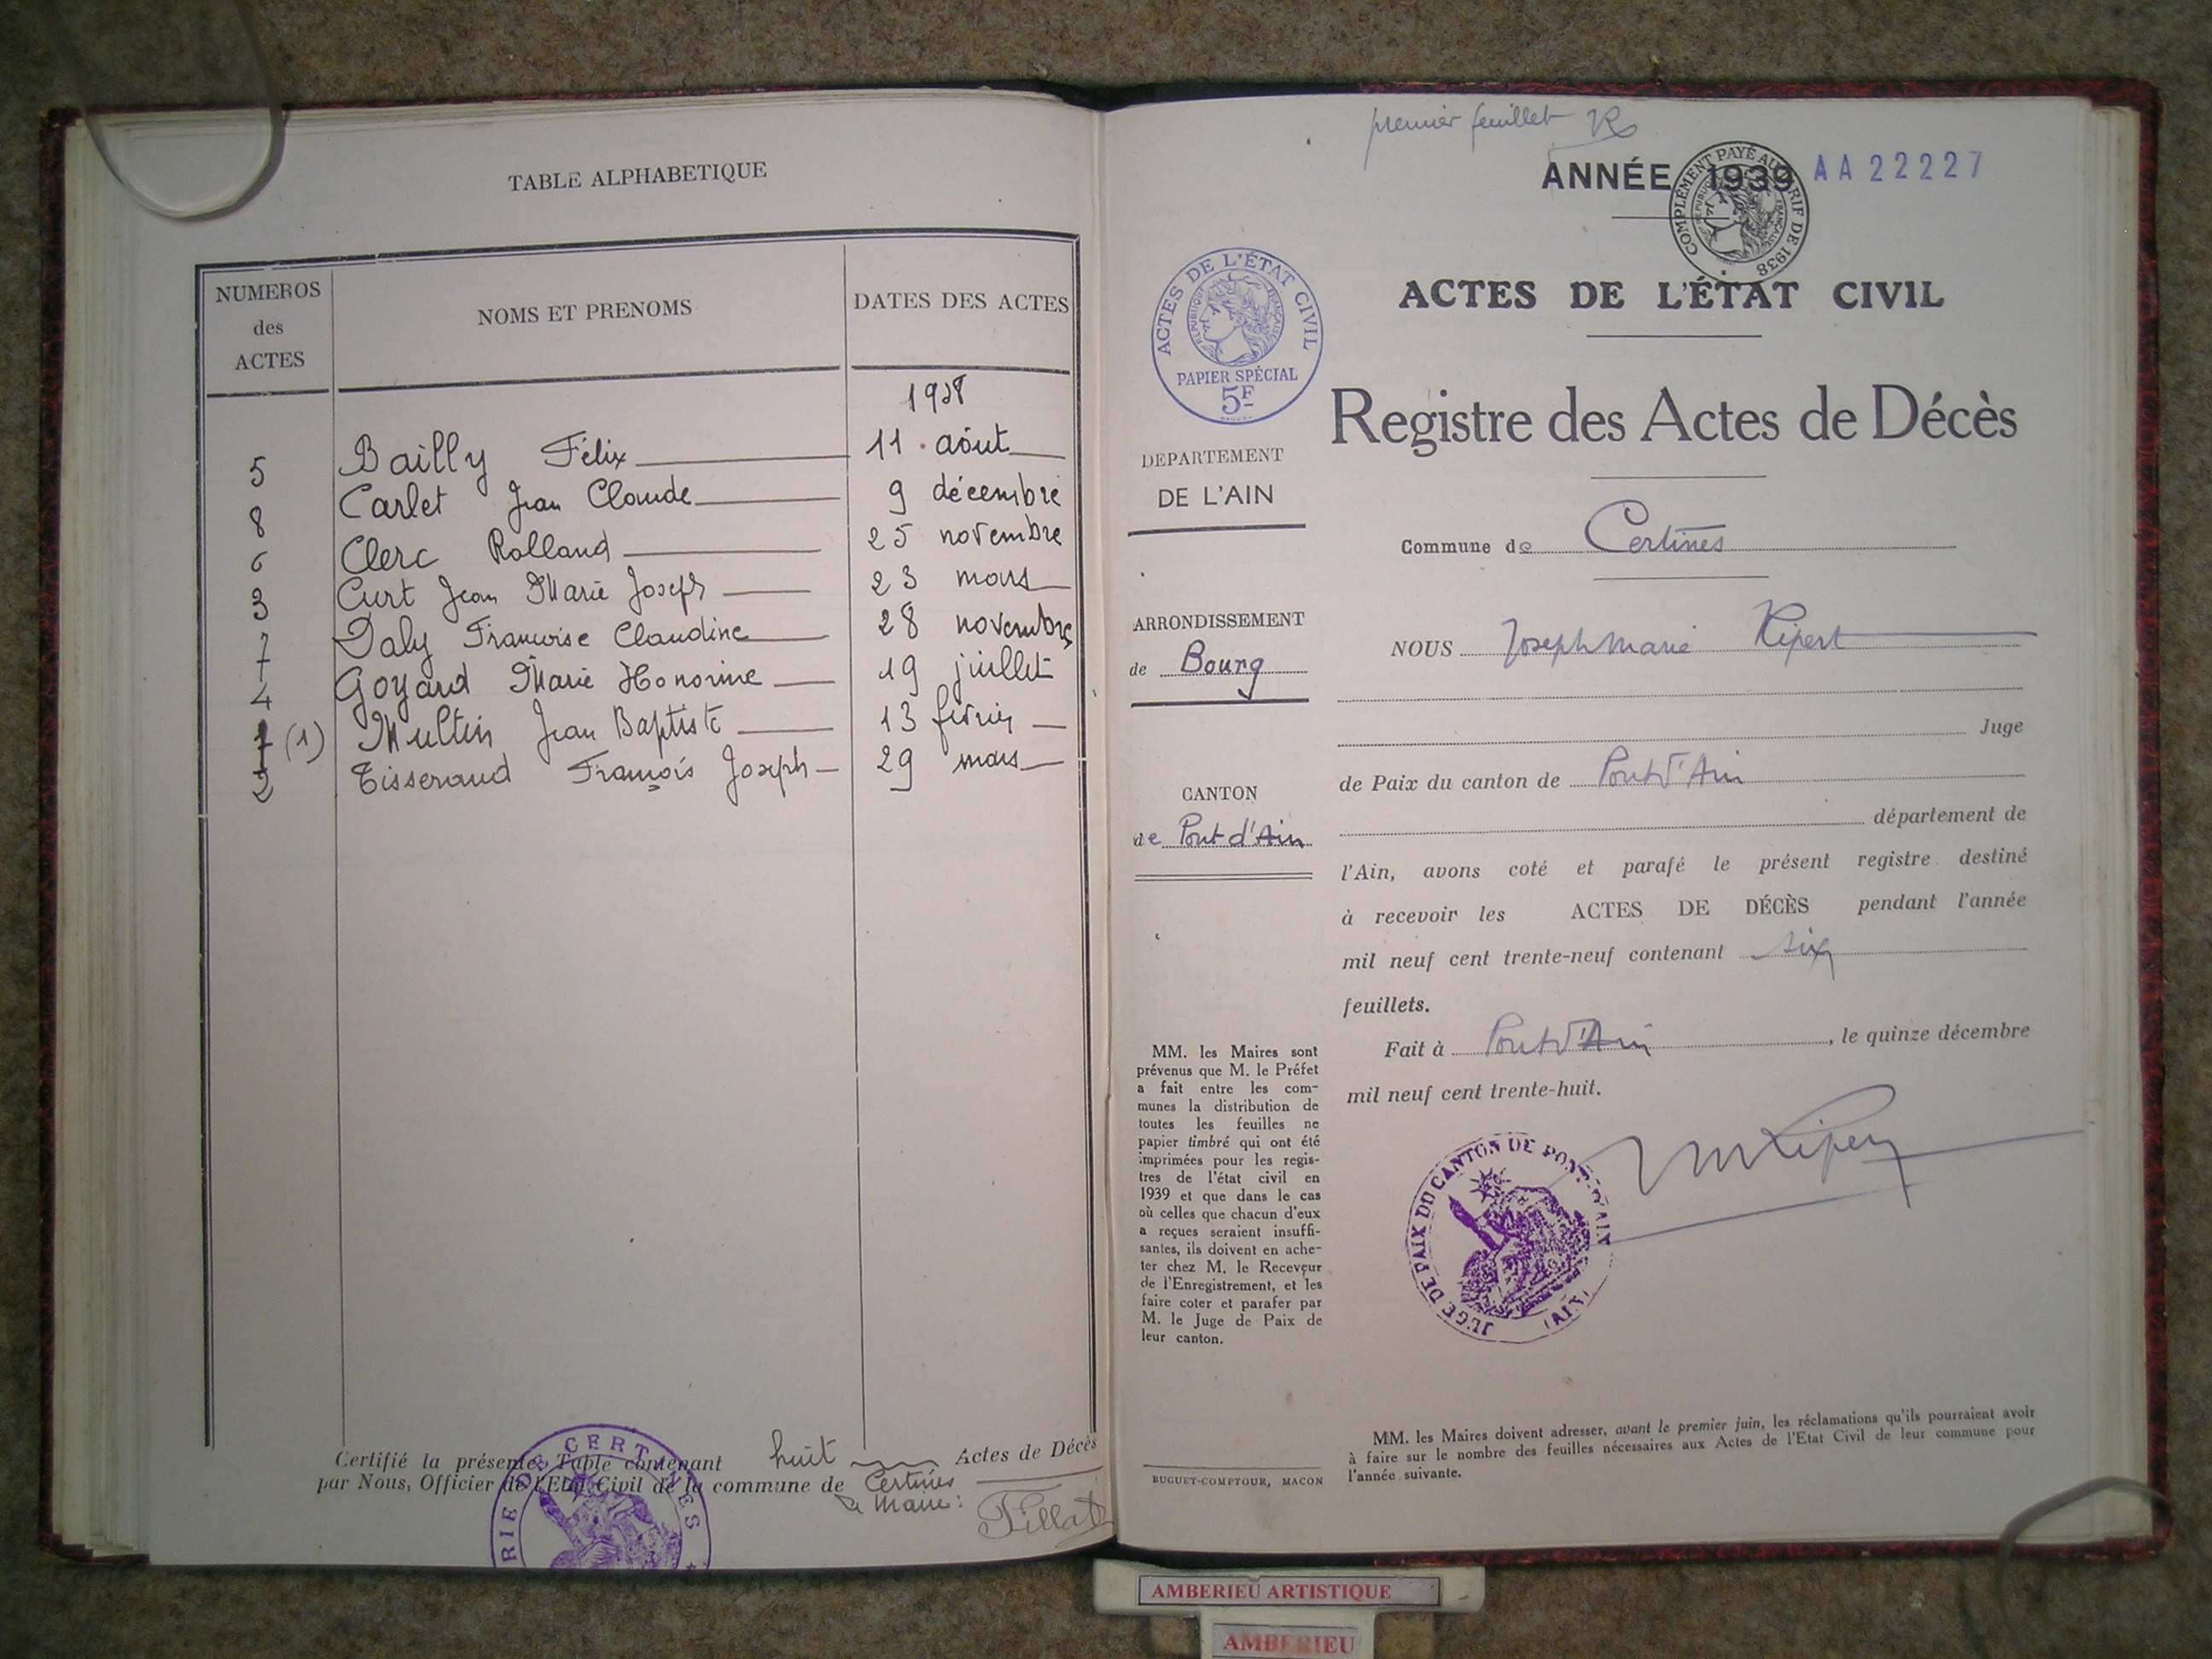 TABLE ALPHABETIQUE
NUMEROS
des
ACTES
NOMS ET PRENOMS
DATES DES ACTES
1938
5 Bailly Félix 11 août
8 Carlet Jean Claude 9 décembre
6 Clerc Rolland 25 novembre
3 Curt Jean Marie Joseph 23 mars
7 Daly Françoise Claudine 28 novembre
4 Goyard Marie Honorine 19 juillet
1 (1) Multin Jean Baptiste 13 février
2 Tisserand François Joseph 29 mars
Certifié la présente Table contenant huit Actes de Décès
par Nous, Officier de l'Etat Civil de la commune de Certines
Le Maire :
Fillat
RIE DE CERTINES
premier feuillet
ANNÉE 1939
AA22227
COMPLÉMENT PAYÉ AU TARIF DE 1938
ACTES DE L'ÉTAT CIVIL
RÉPUBLIQUE FRANÇAISE
PAPIER SPÉCIAL
5F
DEPARTEMENT
DE L'AIN
ARRONDISSEMENT
de Bourg
CANTON
de Pont d'Ain
MM. les Maires sont
prévenus que M. le Préfet
a fait entre les com-
munes la distribution de
toutes les feuilles ne
papier timbré qui ont été
imprimées pour les regis-
tres de l'état civil en
1939 et que dans le cas
où celles que chacun d'eux
a reçues seraient insuffi-
santes, ils doivent en ache-
ter chez M. le Receveur
de l'Enregistrement, et les
faire coter et parafer par
M. le Juge de Paix de
leur canton.
BUGUET-COMPTOUR, MACON
ACTES DE L'ÉTAT CIVIL
Registre des Actes de Décès
Commune de Certines
NOUS Joseph Marie Ripert
Juge
de Paix du canton de Pont d'Ain
département de
l'Ain, avons coté et parafé le présent registre destiné
à recevoir les ACTES DE DÉCÈS pendant l'année
mil neuf cent trente-neuf contenant six
feuillets.
Fait à Pont d'Ain, le quinze décembre
mil neuf cent trente-huit.
JUGE DE PAIX DU CANTON DE PONT-D'AIN
(AIN)
MM. les Maires doivent adresser, avant le premier juin, les réclamations qu'ils pourraient avoir
à faire sur le nombre des feuilles nécessaires aux Actes de l'Etat Civil de leur commune pour
l'année suivante.
AMBERIEU ARTISTIQUE
AMBERIEU